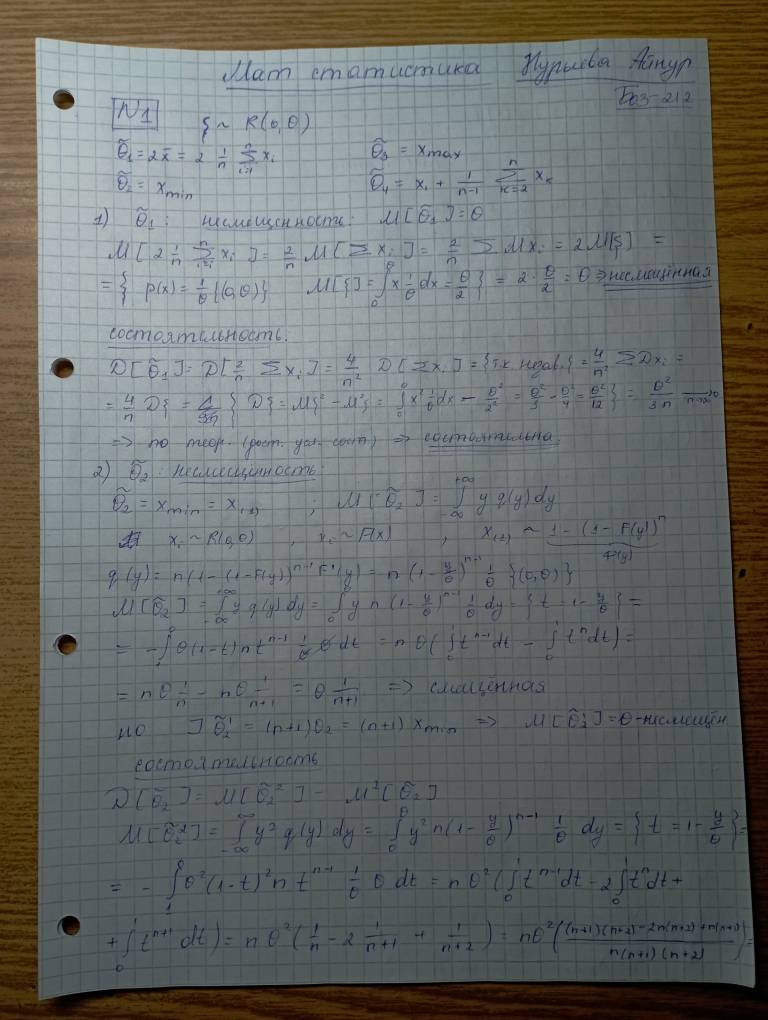 Мат статистика Нурыева Айнур
БОЗ-212
N1 ξ ~ R(0,θ)
θ̃₁ = 2x̄ = 2 1/n Σⁿᵢ₌₁ xᵢ θ̃₃ = xmax
θ̃₂ = xmin θ̃₄ = x₁ + 1/(n-1) Σⁿₖ₌₂ xₖ
1) θ̃₁: несмещенность: M[θ̃₁] = θ
M[2 1/n Σⁿᵢ₌₁ xᵢ] = 2/n M[Σxᵢ] = 2/n ΣMxᵢ = 2M[ξ] =
= { p(x) = 1/θ {(0,θ)} M[ξ] = ∫₀^θ x 1/θ dx = θ/2 } = 2·θ/2 = θ ⇒ несмещённая
состоятельность:
D[θ̃₁] = D[2/n Σxᵢ] = 4/n² D[Σxᵢ] = {т.к. незав.} = 4/n² ΣDxᵢ =
= 4/n Dξ = { Dξ = Mξ² - M²ξ = ∫₀^θ x² 1/θ dx - θ²/2² = θ²/3 - θ²/4 = θ²/12 } = θ²/3n → 0 n→∞
⇒ по теор. (дост. усл. сост.) ⇒ состоятельна.
2) θ̃₂: несмещённость:
θ̃₂ = xmin = x₍₁₎ ; M[θ̃₂] = ∫₋∞^+∞ y q(y) dy
xᵢ ~ R(0,θ) , xᵢ ~ F(x) , x₍₁₎ ~ 1 - (1 - F(y))ⁿ
q(y) = n(1 - (1-F(y))ⁿ⁻¹ F'(y) = n(1 - y/θ)ⁿ⁻¹ 1/θ {(0,θ)}
M[θ̃₂] = ∫₋∞^+∞ y q(y) dy = ∫₀^θ y n (1 - y/θ)ⁿ⁻¹ 1/θ dy = {t = 1 - y/θ} =
= -∫₁⁰ θ(1-t) n tⁿ⁻¹ 1/θ θ dt = nθ(∫₀¹ tⁿ⁻¹dt - ∫₀¹ tⁿdt) =
= nθ 1/n - nθ 1/(n+1) = θ 1/(n+1) ⇒ смещённая
но ] θ̃₂' = (n+1)θ₂ = (n+1) xmin ⇒ M[θ̃₂'] = θ - несмещён
состоятельность
D[θ̃₂] = M[θ̃₂²] - M²[θ̃₂]
M[θ̃₂²] = ∫₋∞^∞ y² q(y) dy = ∫₀^θ y² n(1 - y/θ)ⁿ⁻¹ 1/θ dy = {t = 1 - y/θ} =
= -∫₁⁰ θ²(1-t)² n tⁿ⁻¹ 1/θ θ dt = nθ²(∫₀¹ tⁿ⁻¹dt - 2∫₀¹ tⁿdt +
+ ∫₀¹ tⁿ⁺¹dt) = nθ²(1/n - 2 1/(n+1) + 1/(n+2)) = nθ²(((n+1)(n+2) - 2n(n+2) + n(n+1))/(n(n+1)(n+2))) =